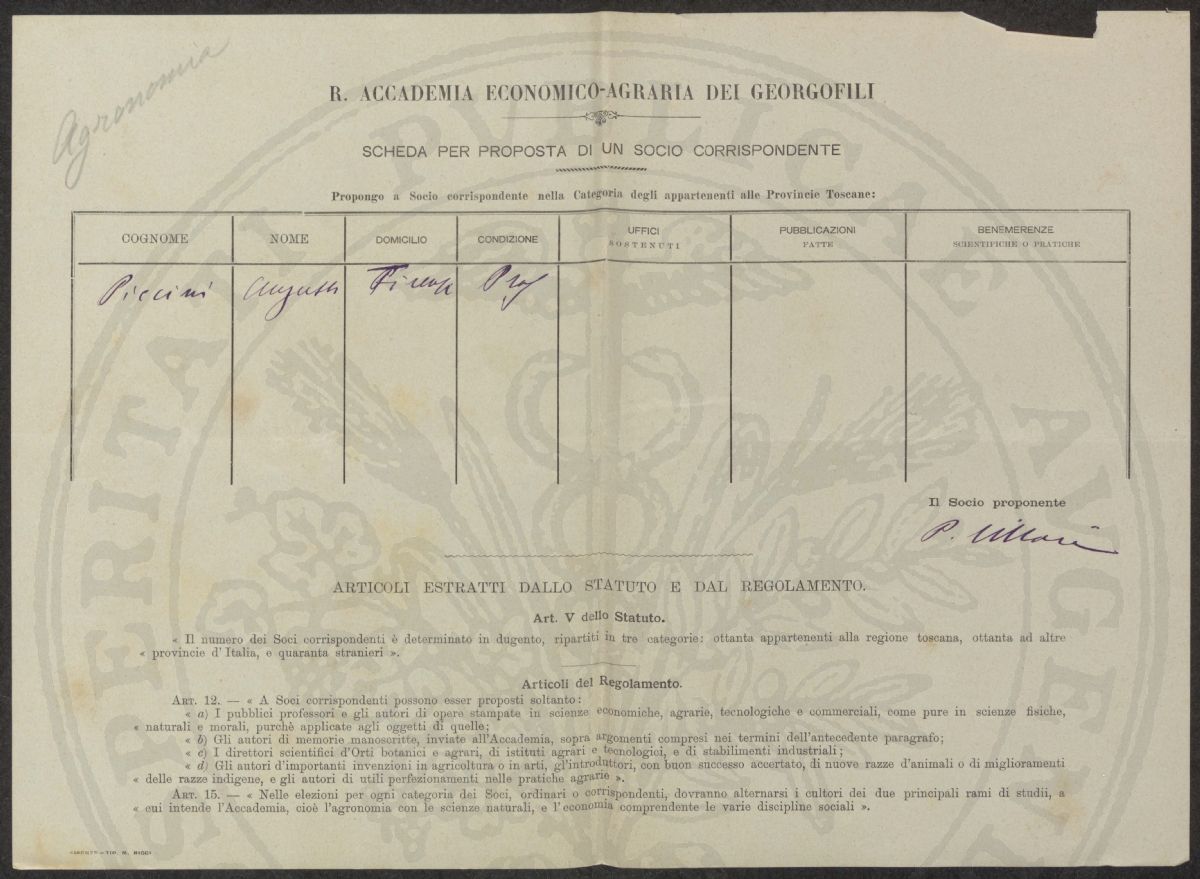 Agronomia
R. ACCADEMIA ECONOMICO-AGRARIA DEI GEORGOFILI
SCHEDA PER PROPOSTA DI UN SOCIO CORRISPONDENTE
Propongo a Socio corrispondente nella Categoria degli appartenenti alle Provincie Toscane:
COGNOME NOME DOMICILIO CONDIZIONE UFFICI SOSTENUTI PUBBLICAZIONI FATTE BENEMERENZE SCIENTIFICHE O PRATICHE
Piccini Augusto Firenze Prof
Il Socio proponente
P. Villari
ARTICOLI ESTRATTI DALLO STATUTO E DAL REGOLAMENTO.
Art. V dello Statuto.
« Il numero dei Soci corrispondenti è determinato in dugento, ripartiti in tre categorie: ottanta appartenenti alla regione toscana, ottanta ad altre
« provincie d'Italia, e quaranta stranieri ».
Articoli del Regolamento.
ART. 12. — « A Soci corrispondenti possono esser proposti soltanto:
« a) I pubblici professori e gli autori di opere stampate in scienze economiche, agrarie, tecnologiche e commerciali, come pure in scienze fisiche,
« naturali e morali, purchè applicate agli oggetti di quelle;
« b) Gli autori di memorie manoscritte, inviate all'Accademia, sopra argomenti compresi nei termini dell'antecedente paragrafo;
« c) I direttori scientifici d'Orti botanici e agrari, di istituti agrari e tecnologici, e di stabilimenti industriali;
« d) Gli autori d'importanti invenzioni in agricoltura o in arti, gl'introduttori, con buon successo accertato, di nuove razze d'animali o di miglioramenti
« delle razze indigene, e gli autori di utili perfezionamenti nelle pratiche agrarie ».
ART. 15. — « Nelle elezioni per ogni categoria dei Soci, ordinari o corrispondenti, dovranno alternarsi i cultori dei due principali rami di studii, a
« cui intende l'Accademia, cioè l'agronomia con le scienze naturali, e l'economia comprendente le varie discipline sociali ».
TIP. M. RICCI
PROSPERITATI PVBLICAE AVGENDAE